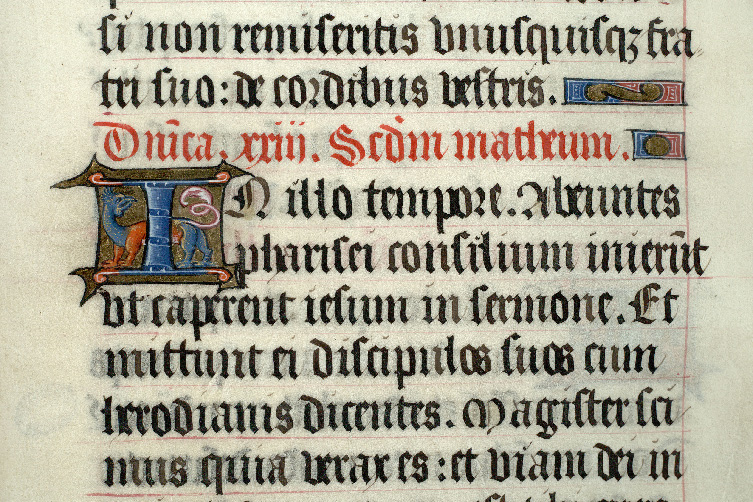 si non remiseritis vnusquisqꝫ fra
tri suo: de cordibus vestris.
Dnĩca. xxiij. Scdm̃ matheum.
IN illo tempore. Abeuntes
pharisei consilium inierũt
vt caperent iesum in sermone. Et
mittunt ei discipulos suos cum
herodianis dicentes. Magister sci
mus quia verax es: et viam dei in